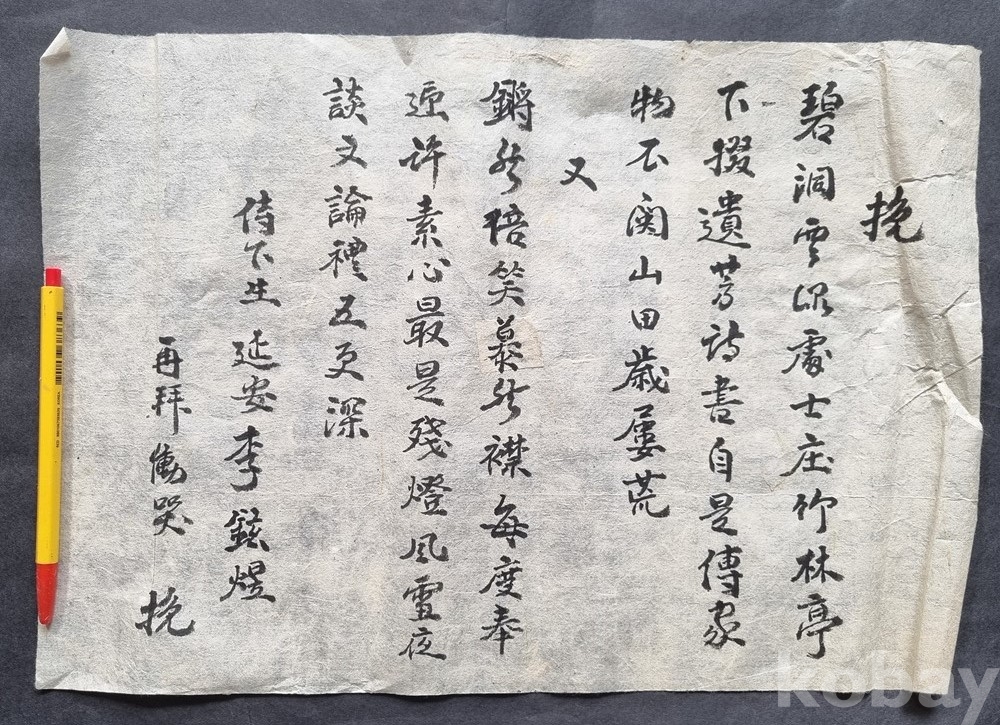 挽
碧洞雲深處士庄竹林亭
下掇遺芳詩書自是傳家
物不關山田歲屢荒
又
鏘然笑然襟每度奉
迎許素心最是殘燈風雪夜
談文論禮五更深
侍下生 延安李鉉煜
再拜慟哭 挽
kobay